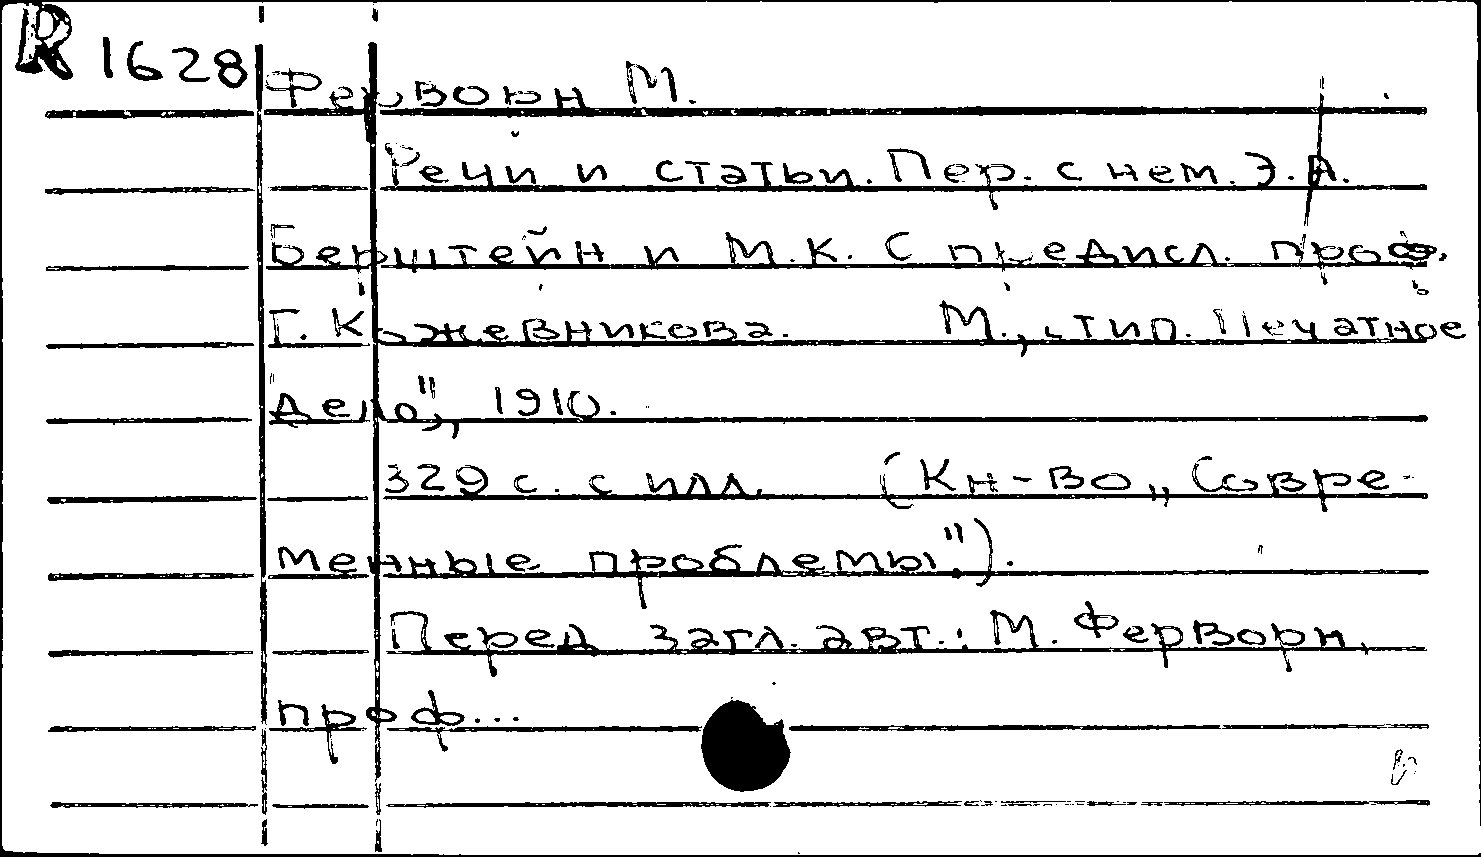 R 1628
Ферворн М.
Речи и статьи. Пер. с нем. Э.А.
Берштейн и М.К. С предисл. проф.
Г. Кожевникова. М., тип. Печатное
дело", 1910.
329 с. с илл. (Кн-во „Совре-
менные проблемы").
Перед загл. авт.: М. Ферворн,
проф...